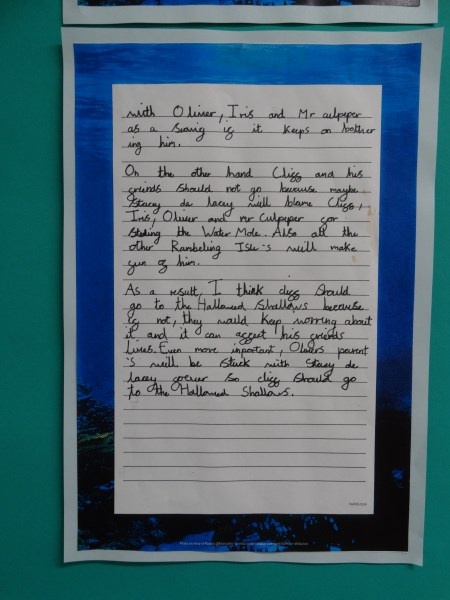 with Oliver, Iris and Mr culpeper
as a Seawig if it keeps on bother
ing him.
On the other hand Cliff and his
friends should not go because maybe
Stacey de Lacey will blame Cliff,
Iris, Oliver and mr Culpeper for
the Water Mole. Also all the
other Rambeling Isle's will make
fun of him.
As a result, I think cliff should
go to the Hallowed Shallows because
if not, they would keep worring about
it and it can affect his friends
lives. Even more inportant, Olivers parent
's will be stuck with Stacey de
Lacey forever so cliff should go
to the Hallowed Shallows.